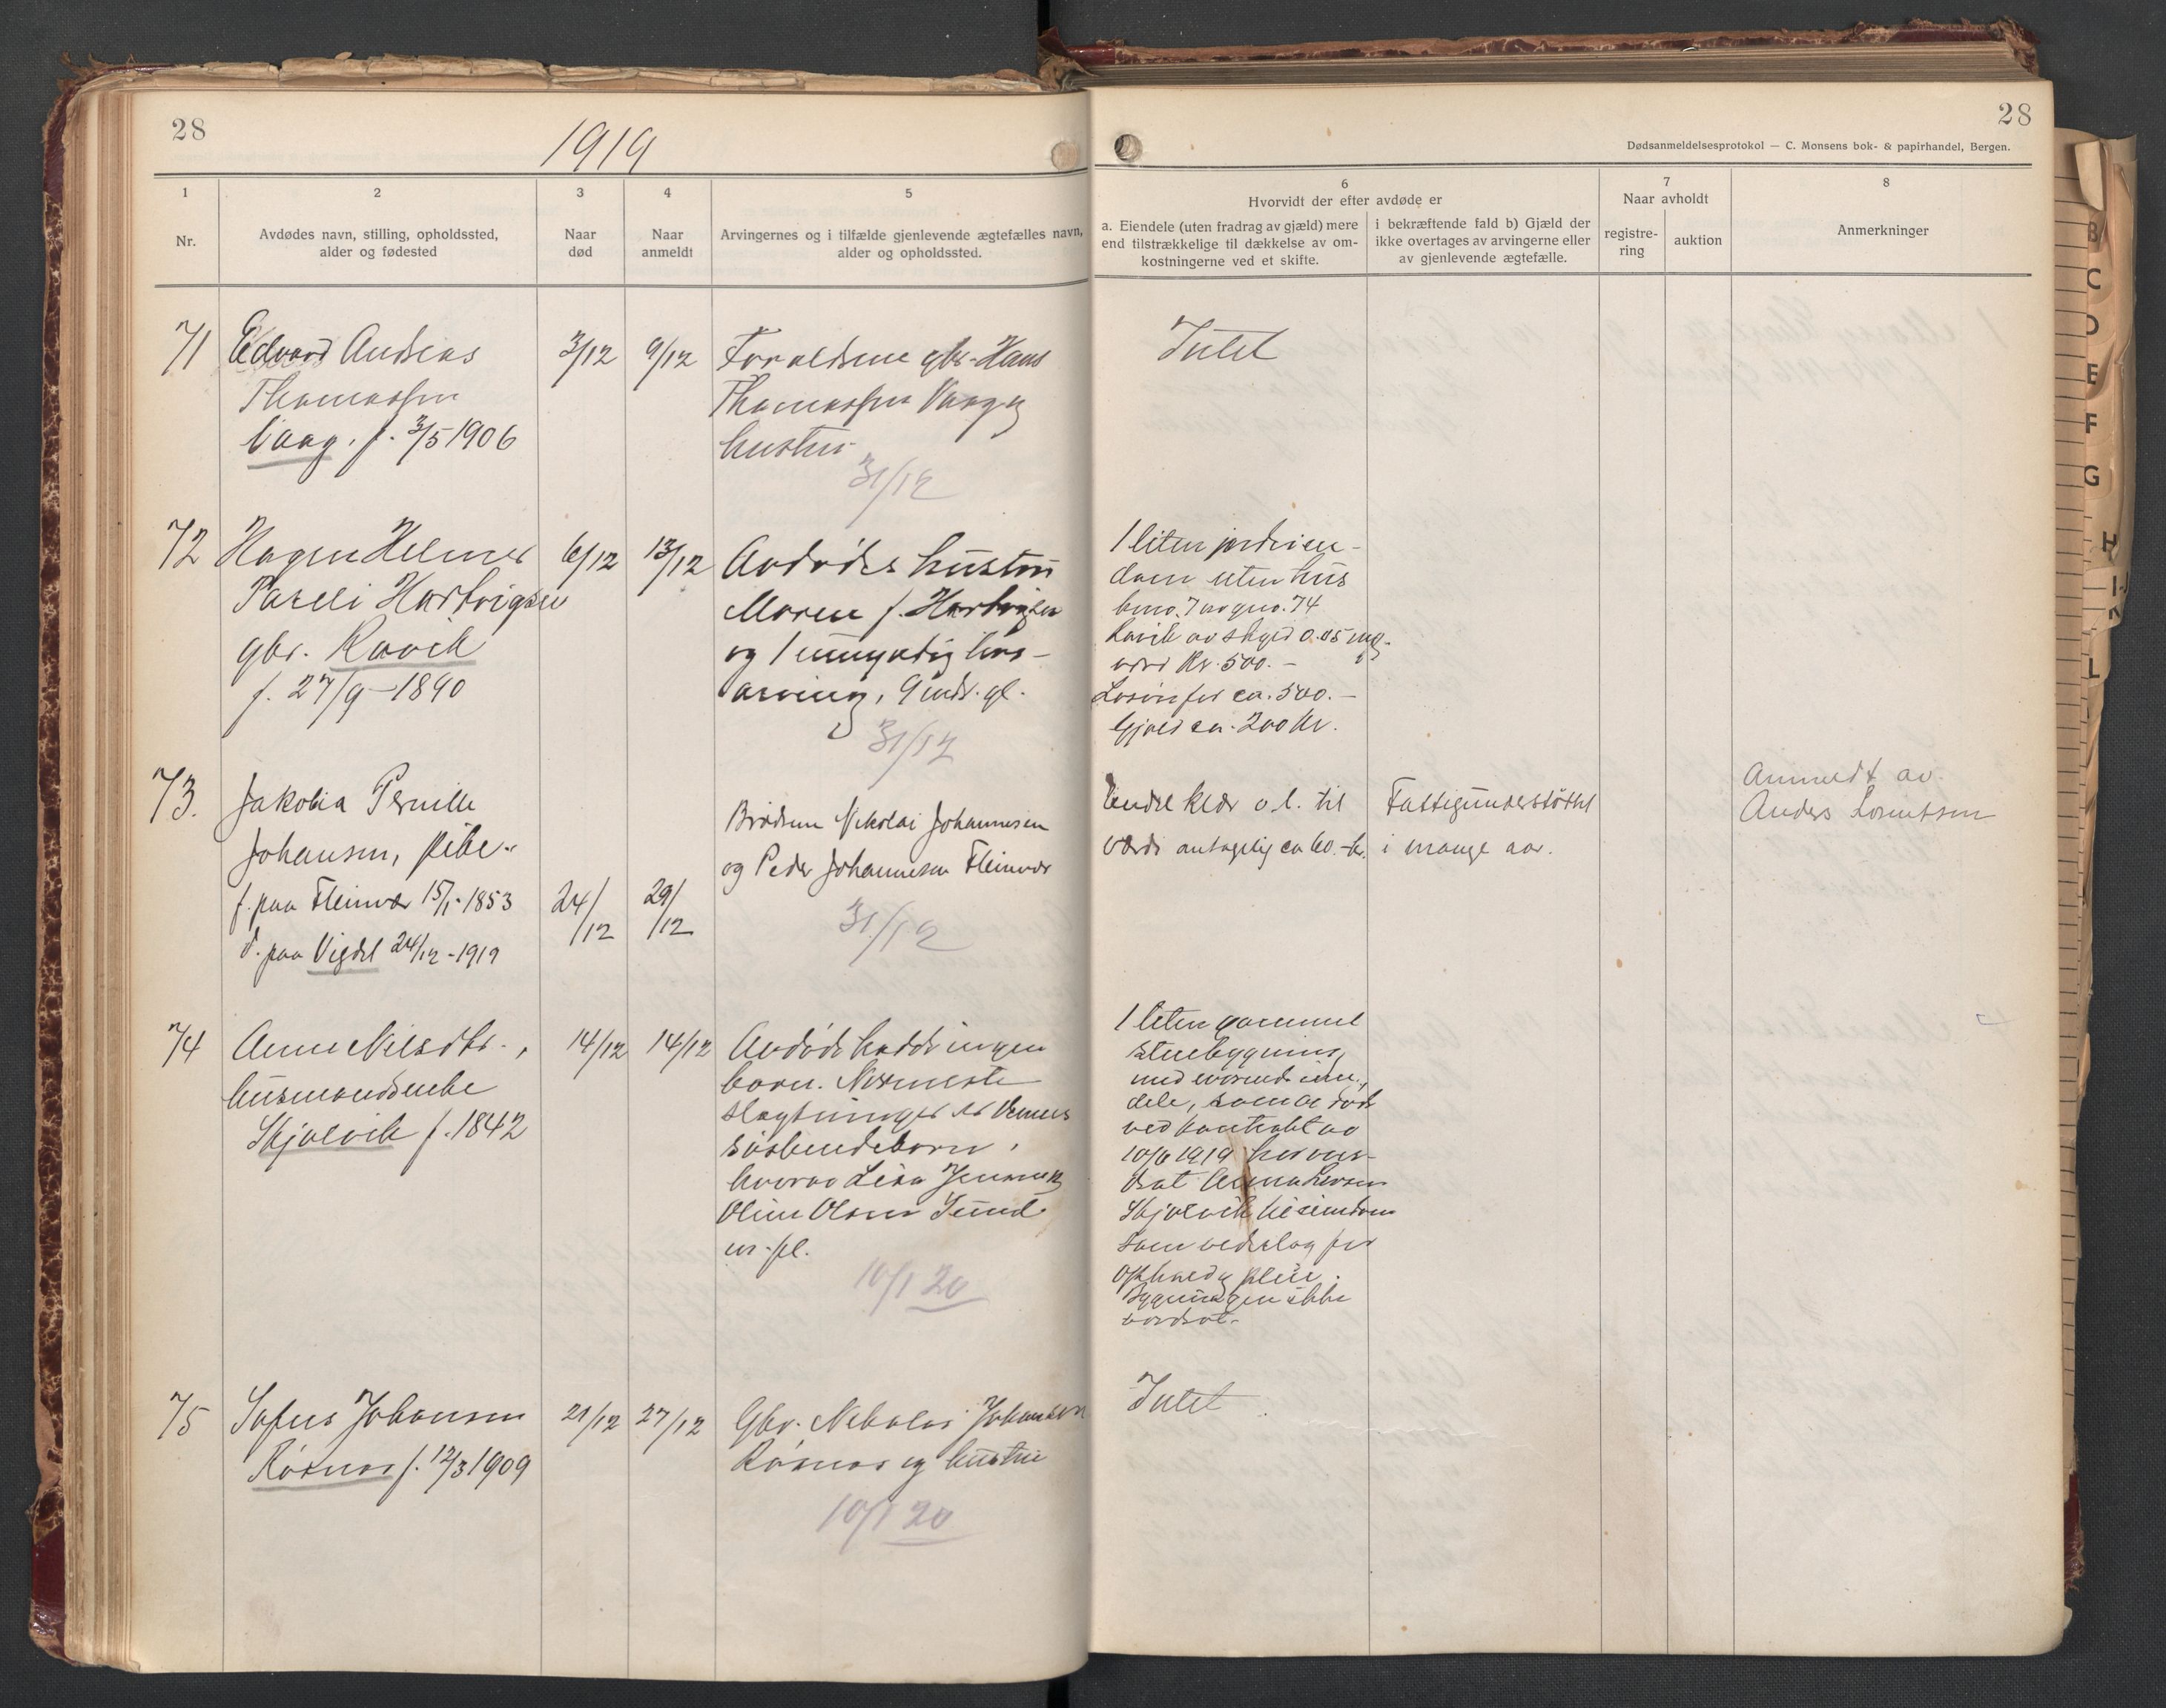 28
1919
28
Dødsanmeldelsesprotokol — C. Monsens bok- & papirhandel, Bergen.
1
2
3
4
5
6
7
8
Nr.
Avdødes navn, stilling, opholdssted,
alder og fødested
Naar
død
Naar
anmeldt
Arvingernes og i tilfælde gjenlevende ægtefælles navn,
alder og opholdssted.
Hvorvidt der efter avdøde er
a. Eiendele (uten fradrag av gjæld) mere
end tilstrækkelige til dækkelse av om-
kostningerne ved et skifte.
i bekræftende fald b) Gjæld der
ikke overtages av arvingerne eller
av gjenlevende ægtefælle.
Naar avholdt
registre-
ring
auktion
Anmerkninger
71
Edvard Andreas
Thomassen
Vaag. f. 3/5 1906
3/12
9/12
Forældrene gbr. Hans
Thomassen Vaag og
hustru
31/12
Intet
72
Hagen Helmer
Pareli Hartvigsen
gbr. Ravik
f. 27/9-1890
6/12
13/12
Avdødes hustru
Maren f. Hartvigsen
og 1 umyndig livs-
arving, 9 mdr. gl.
31/12
1 liten jordeien-
dom uten hus
bno. 7 av gno. 74
Ravik av skyld 0.05 mg.
værd Kr. 500.-
Løsøre for ca. 500.-
Gjæld ca. 200 Kr.
73.
Jakobia Pernille
Johansen, pike.
f. paa Fleinvær 15/1-1853
d. paa Vigdel 24/12-1919
24/
/12
29/
/12
Brødrene Nikolai Johannesen
og Peder Johannesen Fleinvær
31/12
Endel klær o.l. til
værdi antagelig ca 60.-kr.
Fattigunderstøttet
i mange aar.
Anmeldt av
Anders Lorentsen
74
Anne Nilsdtr.,
husmandsenke
Skjælvik f. 1842
14/12
14/12
Avdøde hadde ingen
barn. Nærmeste
slægtninger er hennes
søskendebarn,
hvorav Lisa Jensen og
Oline Olsen Sund
m. fl.
10/1 20
1 liten gammel
stuebygning
med værende inn-
dele, som avdøde
ved kontrakt av
10/6 1919 har over-
drat Larsen
Skjælvik til eiendom
som vederlag for
ophold og pleie.
Bygningen ikke
værdsat.
75
Sofus Johansen
Røsnes f. 12/3 1909
21/12
27/12
Gbr. Nikolai Johansen
Røsnes og hustru
10/1 20
Intet.
B
C
D
E
F
G
H
I-J
K
L